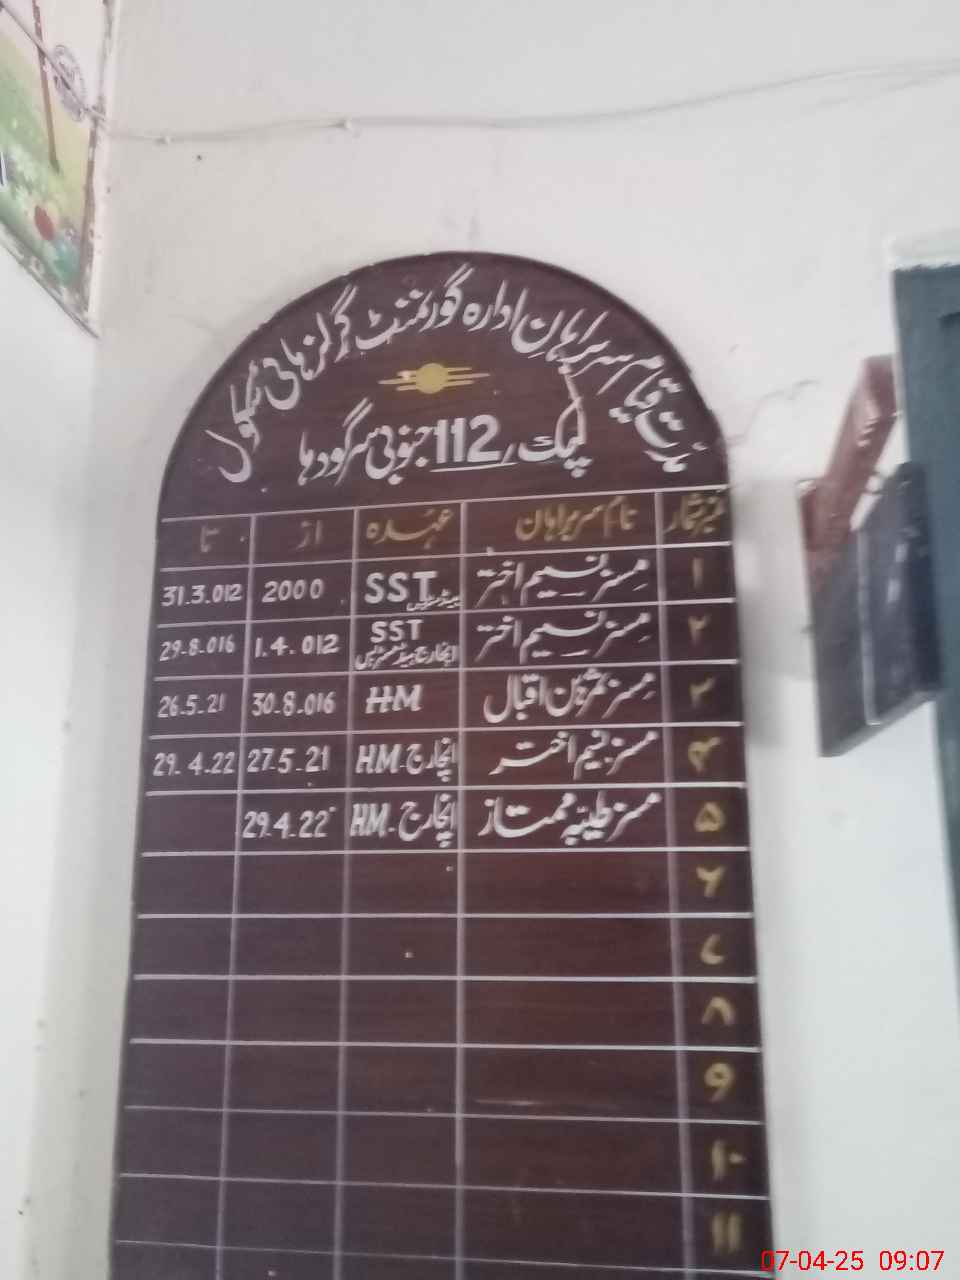 مدت قیام سربراہانِ ادارہ گورنمنٹ گرلز ہائی سکول
چک 112 جنوبی سرگودہا
نمبر شمار نام سربراہان عہدہ از تا
۱ مسز نسیم اختر SST ہیڈمسٹریس 2000 31.3.012
۲ مسز نسیم اختر SST انچارج ہیڈمسٹریس 1.4.012 29-8-016
۳ مسز اقبال HM 30-8-016 26-5-21
۴ مسز نسیم اختر انچارج-HM 27-5-21 29-4-22
۵ مسز طیبہ ممتاز انچارج-HM 29.4.22
۶
۷
۸
۹
۱۰
۱۱
07-04-25 09:07